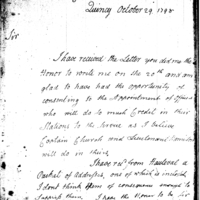 Quincy October 29 1798
Sir
I have received the Letter you did me the
Honor to write me on the 20th and am
glad to have had the opportunity of
consenting to the Appointment of officers
who will do so much Credit in their
Stations to the Service as I believe
Captain Church and Lieutenant
will do in their
I have recd from Hauteval a
Packet of Addresses, one of which is inclosed
I don't think them of consequence enough to
I have the Honor to be Sir